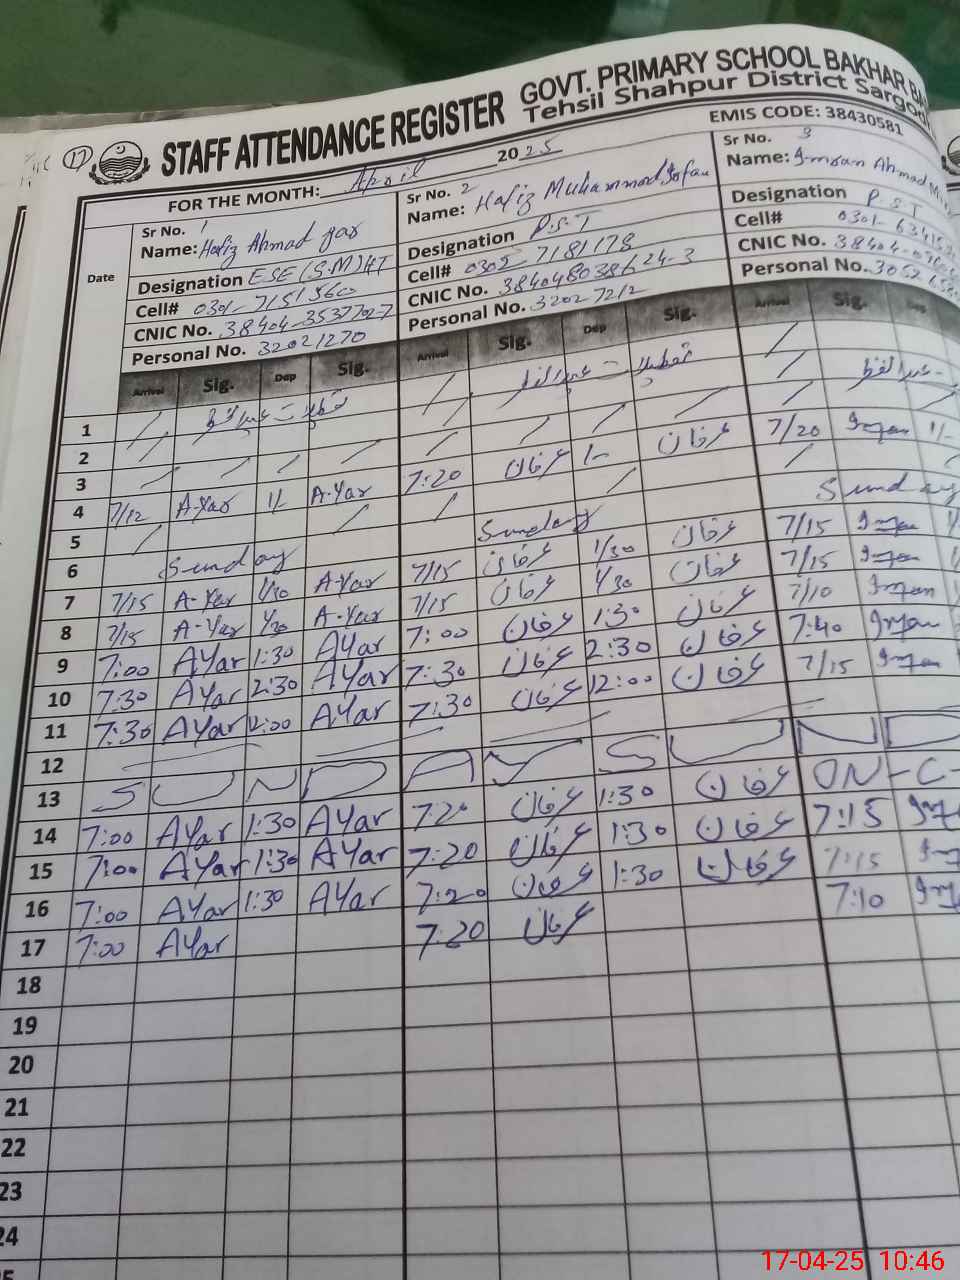 17
STAFF ATTENDANCE REGISTER GOVT. PRIMARY SCHOOL BAKHAR BA
Tehsil Shahpur District Sargod
EMIS CODE: 38430581
FOR THE MONTH: April 2025
Date
Sr No. 1
Name: Hafiz Ahmad yar
Designation ESE (S.M) HT
Cell# 0301-7151560
CNIC No. 38404-3537702-7
Personal No. 32021270
Sr No. 2
Name: Hafiz Muhammad Irfan
Designation P.S.T
Cell# 0302-7181178
CNIC No. 384048038624-3
Personal No. 32027212
Sr No. 3
Name: Imran Ahmad
Designation P.S.T
Cell# 0301-63415
CNIC No. 38404-0
Personal No. 30526
Arrival Sig. Dep Sig. Arrival Sig. Dep Sig. Arrival Sig. Dep
1 / تعطیلات عیدالفطر / تعطیلات عیدالفطر / عیدالفطر
2 / / / / / / / / / /
3 / / / / 7:20 عرفان 1/- عرفان 7/20 Imran 1/-
4 7/12 A-Yar 1/- A-Yar / / / /
5 / / Sunday Sunday
6 Sunday 7/15 عرفان 1/30 عرفان 7/15 Imran
7 7/15 A-Yar 1/30 A-Yar 7/15 عرفان 1/30 عرفان 7/15 Imran
8 7/15 A-Yar 1/30 A-Yar 7:00 عرفان 1:30 عرفان 7/10 Imran
9 7:00 AYar 1:30 AYar 7:30 عرفان 2:30 عرفان 7:40 Imran
10 7:30 AYar 2:30 AYar 7:30 عرفان 12:00 عرفان 7/15 Imran
11 7:30 AYar 12:00 AYar
12
13 S U N D A Y S U N D
14 7:00 AYar 1:30 AYar 7:20 عرفان 1:30 عرفان ON-C-
15 7:00 AYar 1:30 AYar 7:20 عرفان 1:30 عرفان 7:15
16 7:00 AYar 1:30 AYar 7:20 عرفان 1:30 عرفان 7:15
17 7:00 AYar 7:20 عرفان 7:10
18
19
20
21
22
23
24
17-04-25 10:46